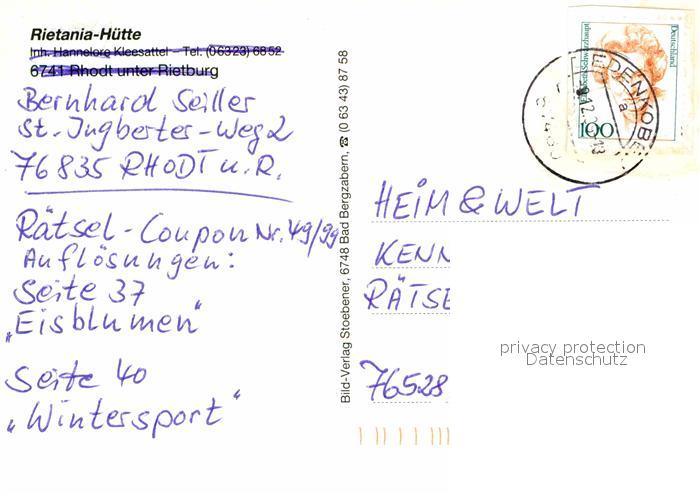 Rietania-Hütte
Inh. Hannelore Kleesattel – Tel. (0 63 23) 68 52
6741 Rhodt unter Rietburg
Bernhard Seiller
St.-Ingberter-Weg 2
76835 RHODT u. R.
Rätsel-Coupon Nr. 49/99
Auflösungen:
Seite 37
„Eisblumen"
Seite 40
„Wintersport"
Bild-Verlag Stoebener, 6748 Bad Bergzabern, ☎ (0 63 43) 87 58
Elisabeth Schwarzhaupt
Deutschland
100
EDENKOBE
a
HEIM & WELT
KENN
RÄTSE
76528
privacy protection
Datenschutz